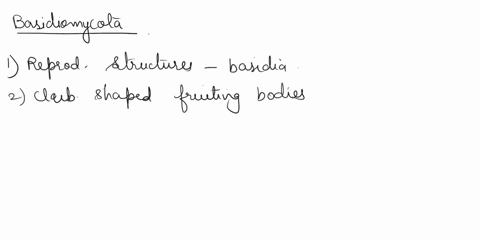 Basidiomycota
1) Reprod. Structures - basidia
2) Club shaped fruiting bodies